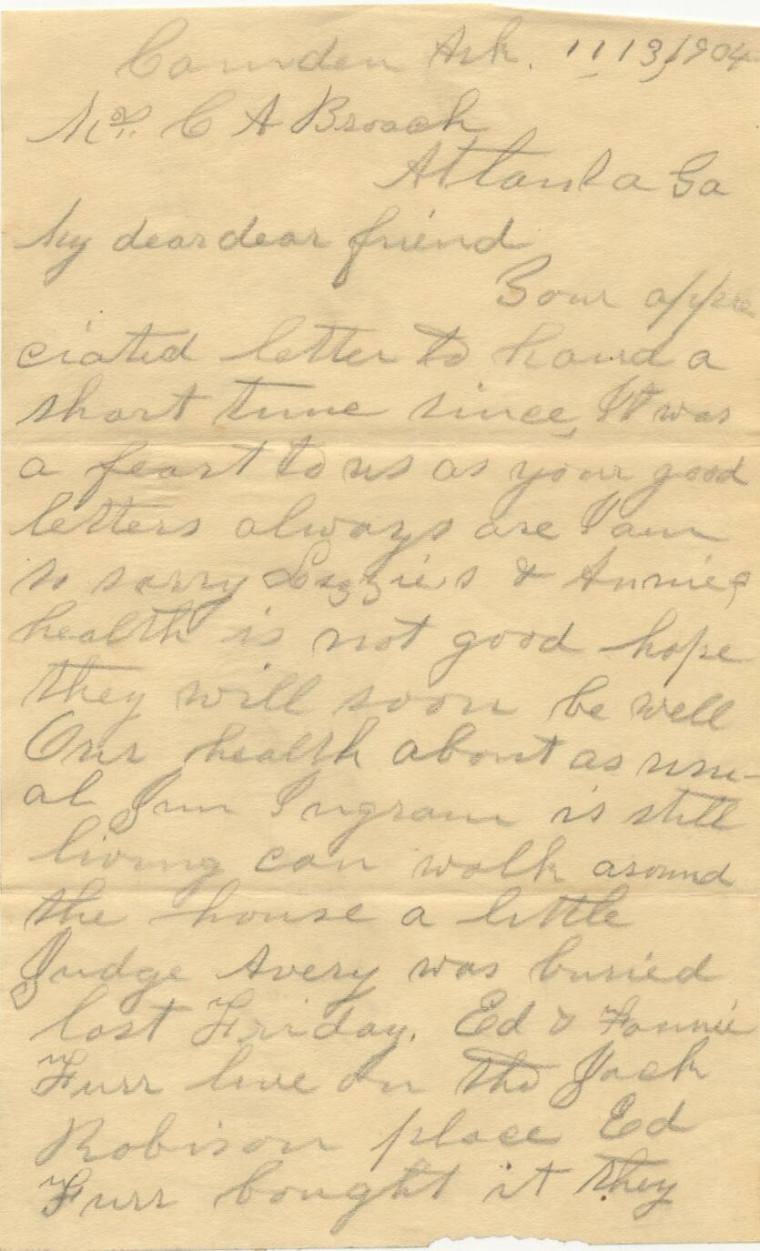 Camden Ark. 11/13/1904
Mr. C A Broach
Atlanta Ga
My dear dear friend
Your appre
ciated letter to hand a
short time since, It was
a feast to us as your good
letters always are I am
so sorry Lizzie's & Annie's
health is not good hope
they will soon be well
Our health about as usu-
al Jim Ingram is still
living can walk around
the house a little
Judge Avery was buried
last Friday. Ed & Fannie
Furr live on the Jack
Robison place Ed
Furr bought it they